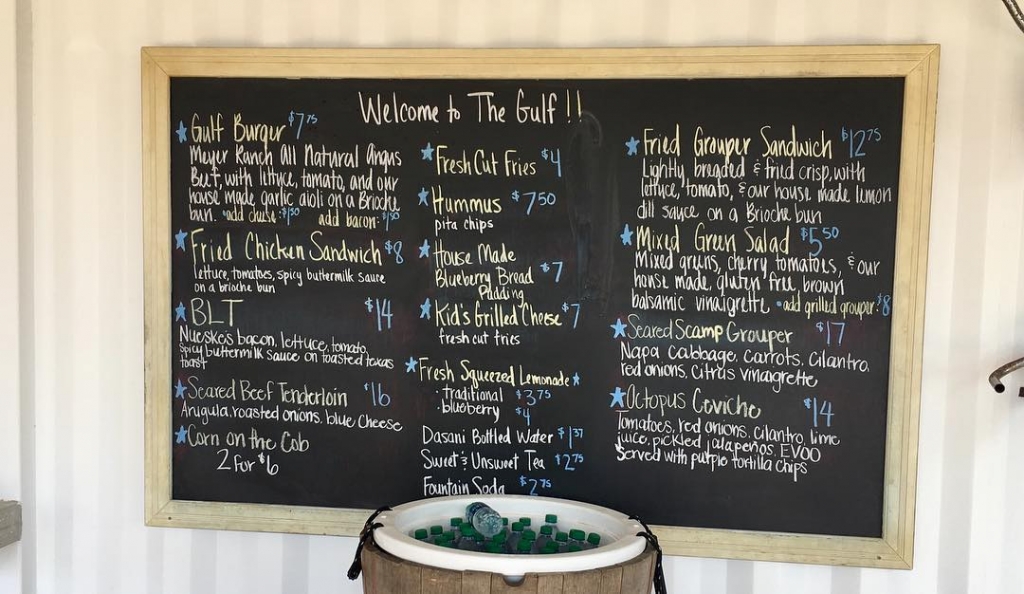 Welcome to The Gulf!!
Gulf Burger $7.75
Meyer Ranch All Natural Angus
Beef, with lettuce, tomato, and our
house made garlic aioli on a Brioche
bun. •add cheese: $1.50 add bacon: $1.50
Fried Chicken Sandwich $8
lettuce, tomatoes, spicy buttermilk sauce
on a brioche bun
BLT $14
Nueske's bacon, lettuce, tomato,
spicy buttermilk sauce on toasted texas
toast
Seared Beef Tenderloin $16
Arugula, roasted onions, blue cheese
Corn on the Cob
2 for $6
Fresh Cut Fries $4
Hummus $7.50
pita chips
House Made
Blueberry Bread $7
Pudding
Kid's Grilled Cheese $7
fresh cut fries
Fresh Squeezed Lemonade
traditional $3.75
blueberry $4
Dasani Bottled Water $1.37
Sweet & Unsweet Tea $2.75
Fountain Soda $2.75
Fried Grouper Sandwich $12.75
Lightly breaded & fried crisp, with
lettuce, tomato, & our house made lemon
dill sauce on a Brioche bun
Mixed Green Salad $5.50
Mixed greens, cherry tomatoes, & our
house made, gluten free, brown
balsamic vinaigrette •add grilled grouper: $8
Seared Scamp Grouper $17
Napa cabbage, carrots, cilantro,
red onions, citrus vinaigrette
Octopus Ceviche $14
Tomatoes, red onions, cilantro, lime
juice, pickled jalapeños, EVOO
Served with purple tortilla chips